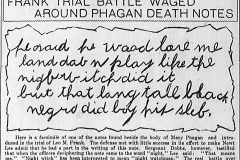 FRANK TRIAL BATTLE WAGED
AROUND PHAGAN DEATH NOTES
he said he wood love me
land dab n play like the
night witch did it
but that long tall black
negro did boy his slef.
Here is a facsimile of one of the notes found beside the body of Mary Phagan and in-
troduced in the trial of Leo M. Frank. The defense met with little success in its effort to make Newt
Lee admit that he had a part in the writing of this note. Sergeant Dobbs, however, testified
that when the officers deciphering the note came to the word "night witch," Lee said: "That means
me." "Night witch" has been interpreted to mean "night watchman." The real battle